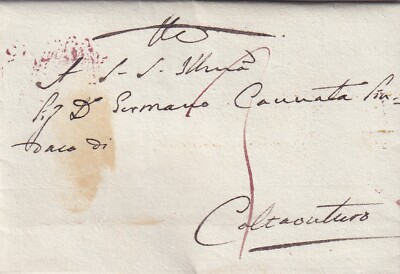 A S. S. Illma
Sig Dn Germano Cannata Sin-
daco di
Caltavuturo